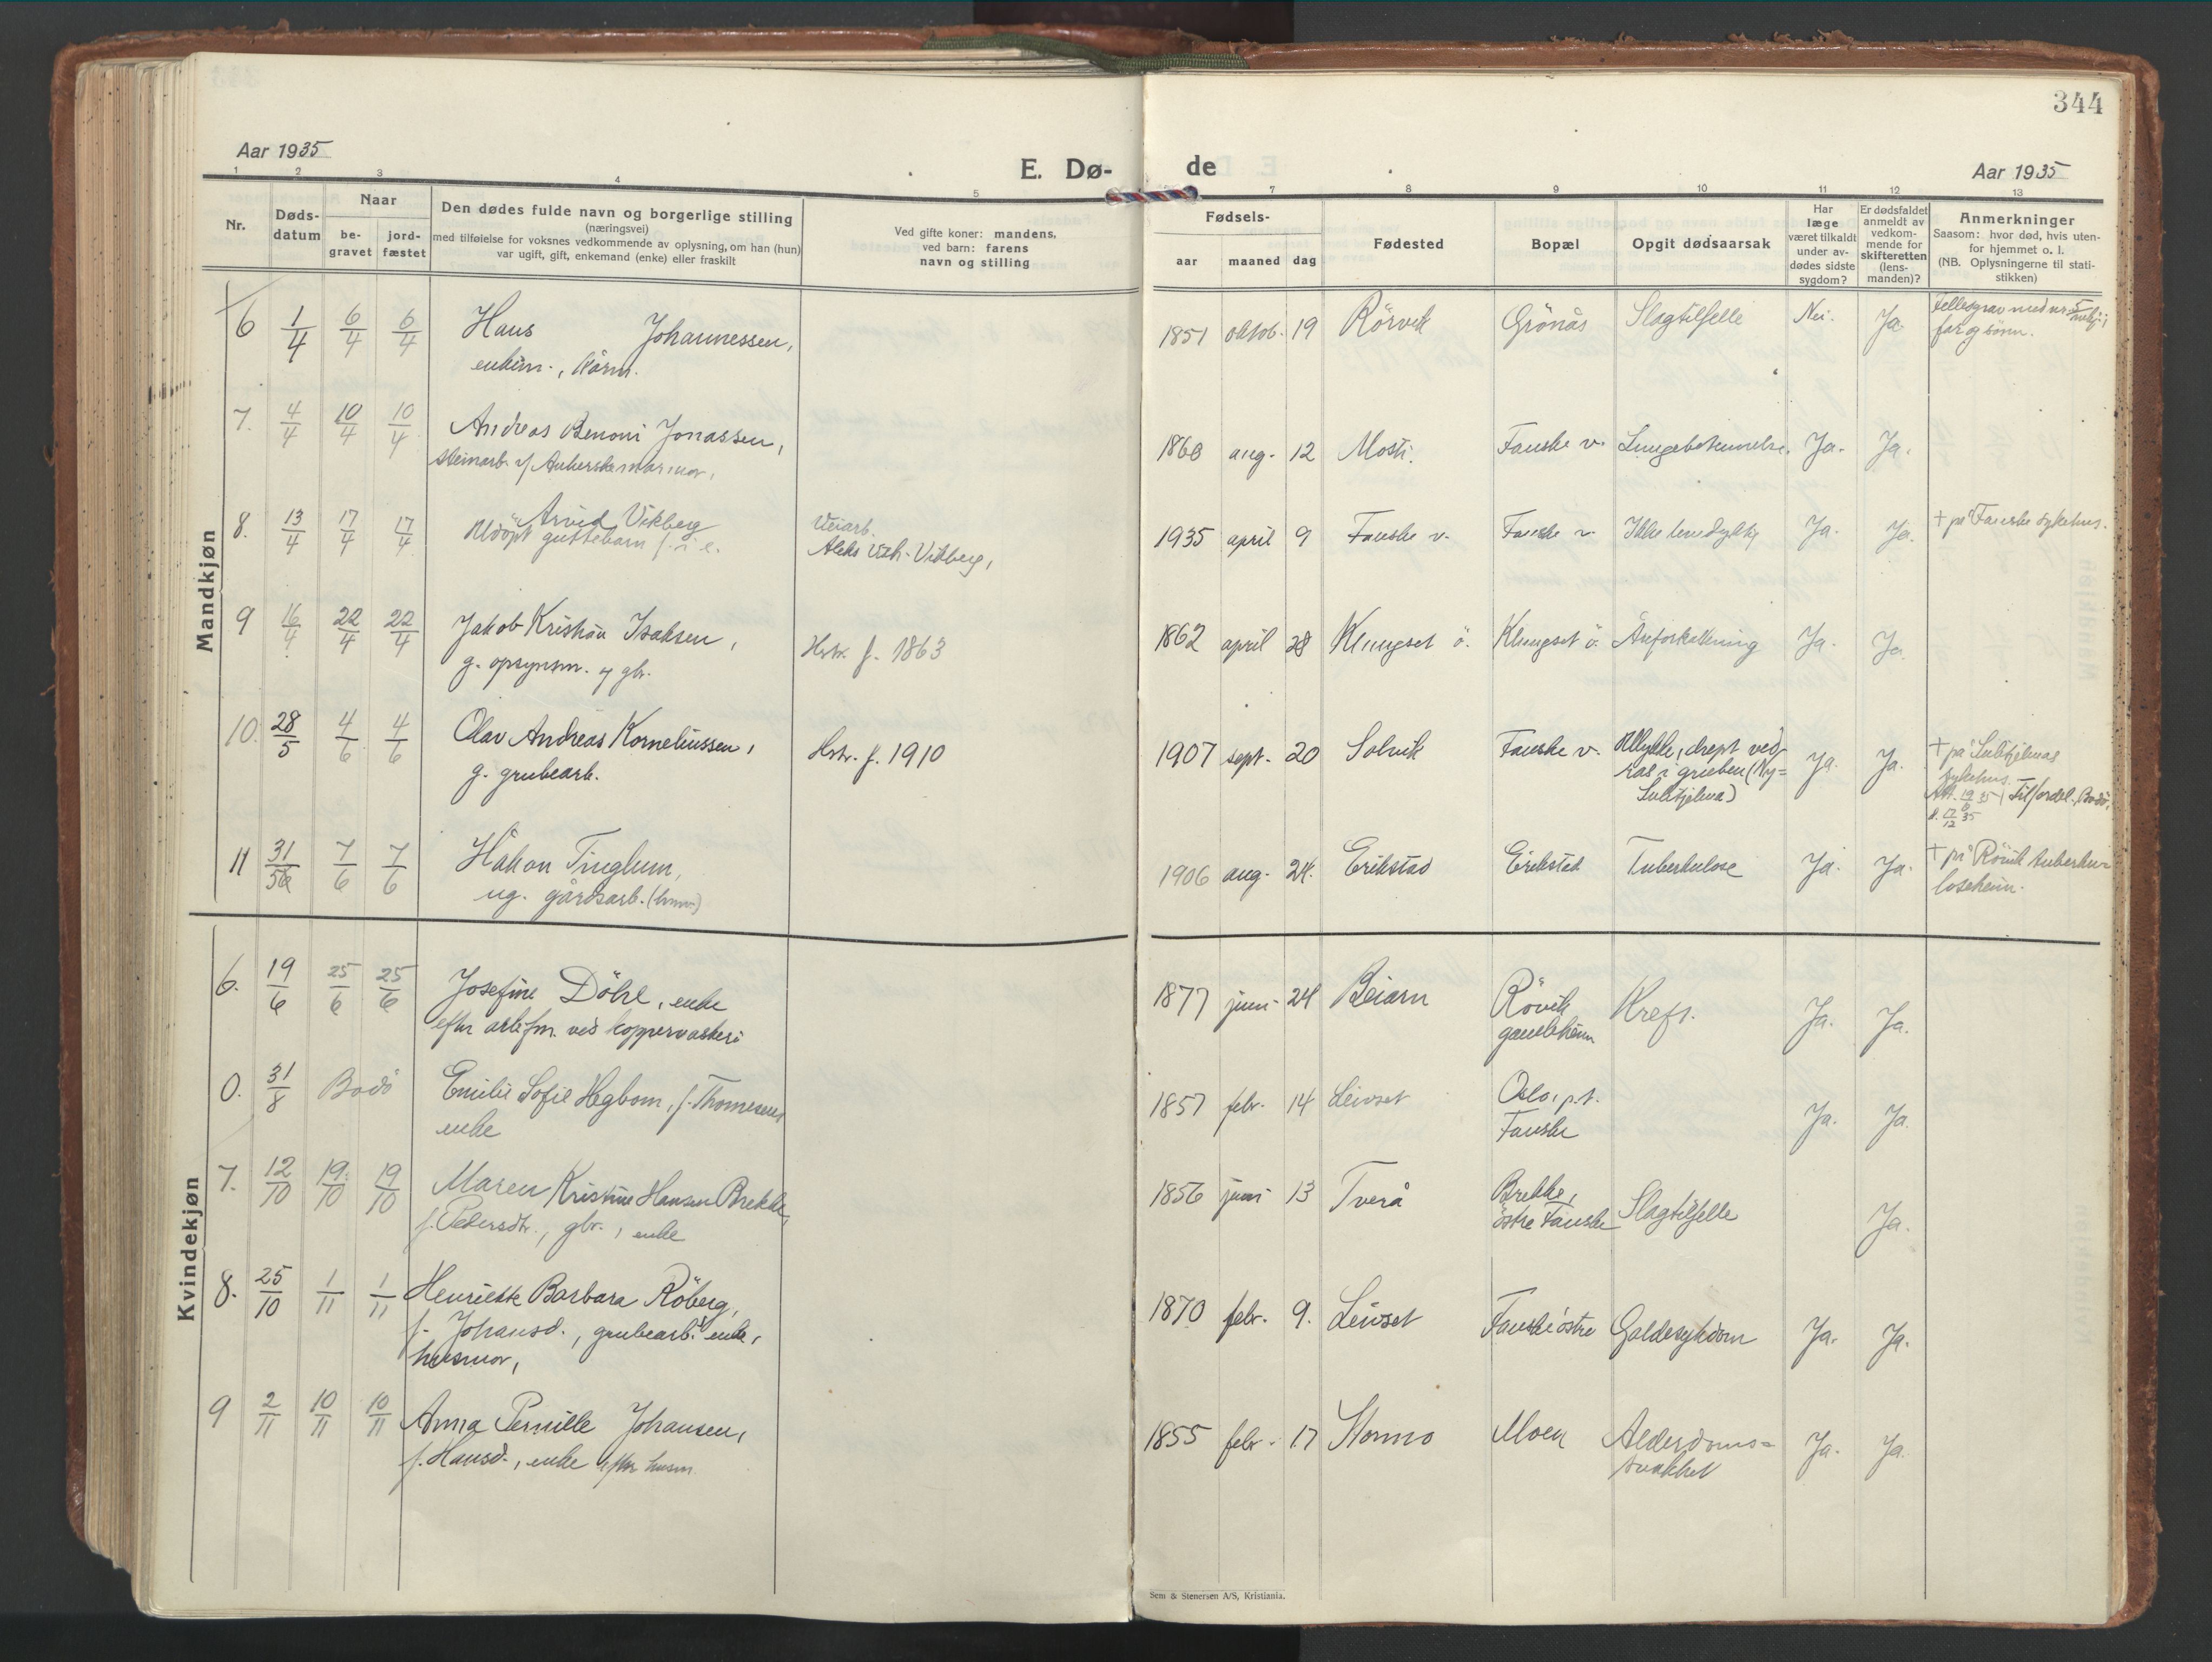 344
Aar 1935
E. Dø- de
Aar 1935
1 2 3 4 5 7 8 9 10 11 12 13
Nr.
Døds-
datum
Naar
be-
gravet
jord-
fæstet
Den dødes fulde navn og borgerlige stilling
(næringsvei)
med tilføielse for voksnes vedkommende av oplysning, om han (hun)
var ugift, gift, enkemand (enke) eller fraskilt
Ved gifte koner: mandens,
ved barn: farens
navn og stilling
Fødsels-
aar maaned dag
Fødested
Bopæl
Opgit dødsaarsak
Har
læge
været tilkaldt
under av-
dødes sidste
sygdom?
Er dødsfaldet
anmeldt av
vedkom-
mende for
skifteretten
(lens-
manden)?
Anmerkninger
Saasom: hvor død, hvis uten-
for hjemmet o. l.
(NB. Oplysningerne til stati-
stikken)
Mandkjøn
6 1/4 6/4 6/4 Hans Johannessen, 1851 oktob. 19 Rörvik Grönås Slagtilfelle Nei. Ja. Fellesgrav med nr. 5
enkem., kårm. far og sönn.
7. 4/4 10/4 10/4 Andreas Benoni Jonassen, 1868 aug. 12 Mosti. Fauske v. Lungebetennelse. Ja. Ja.
steinarb. v/ Ankerske marmor,
8. 13/4 17/4 17/4 Arvid Vikberg Veiarb. 1935 april 9 Fauske v. Fauske v. Ikke levedyktig Ja. Ja. † på Fauske sykehus.
Udöpt guttebarn f. i e. Aleks Vikberg,
9 16/4 22/4 22/4 Jakob Kristian Isaksen, Hstr. f. 1863 1862 april 28 Klungset ö. Klungset ö. Åreforkalkning Ja. Ja.
g. opsynsm. og gbr.
10. 28/5 4/6 4/6 Olav Andreas Korneliussen, Hstr. f. 1910 1907 sept. 20 Solvik Fauske v. Ulykke, drept ved Ja. Ja. † på Sulitjelmas
g. grubearb. ras i gruben (Ny- sykehus.
Sulitjelma) Att. 19/6 35 Bodö.
12 35
11 31/5 7/6 7/6 Håkon Tinglum, 1906 aug. 24. Erikstad Erikstad Tuberkulose Ja. Ja. † på Rövik tuberku-
ug. gårdsarb. losehjem.
Kvindekjøn
6. 19/6 25/6 25/6 Josefine Döhl, enke 1877 juni 24 Beiarn Rövik Kreft. Ja. Ja.
efter arb.fm. ved koppervaskeri gamlehjem
0. 31/8 Bodö Emilie Sofie Hegbom, f. Thomesens 1857 febr. 14 Leivset Oslo, p.t. Ja. Ja.
enke Fauske
7. 12/10 19/10 19/10 Maren Kristine Hansen Brekke, 1856 juni 13 Tverå Brekke, Slagtilfelle Ja.
f. Pedersdtr., gbr., enke östre Fauske
8. 25/10 1/11 1/11 Henriette Barbara Röberg, 1870 febr. 9. Leivset Fauske östre Galdesykdom Ja. Ja.
f. Johansd., grubearb. enke,
husmor,
9 2/11 10/11 10/11 Anna Pernille Johansen, 1855 febr. 17 Stormo Moen Alderdoms- Ja. Ja.
f. Hansd., enke efter husm. svakhet
Sem & Stenersen A/S, Kristiania.